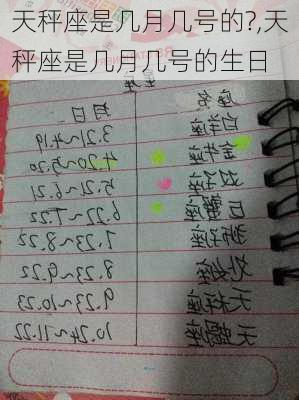 天秤座是几月几号的?,天
秤座是几月几号的生日
3.21~4.19 白羊座
4.20~5.20 金牛座
5.21~6.21
6.22~7.22 巨蟹座
7.23~8.22
8.23~9.22
9.23~10.23 天秤座
10.24~11.22 天蝎座